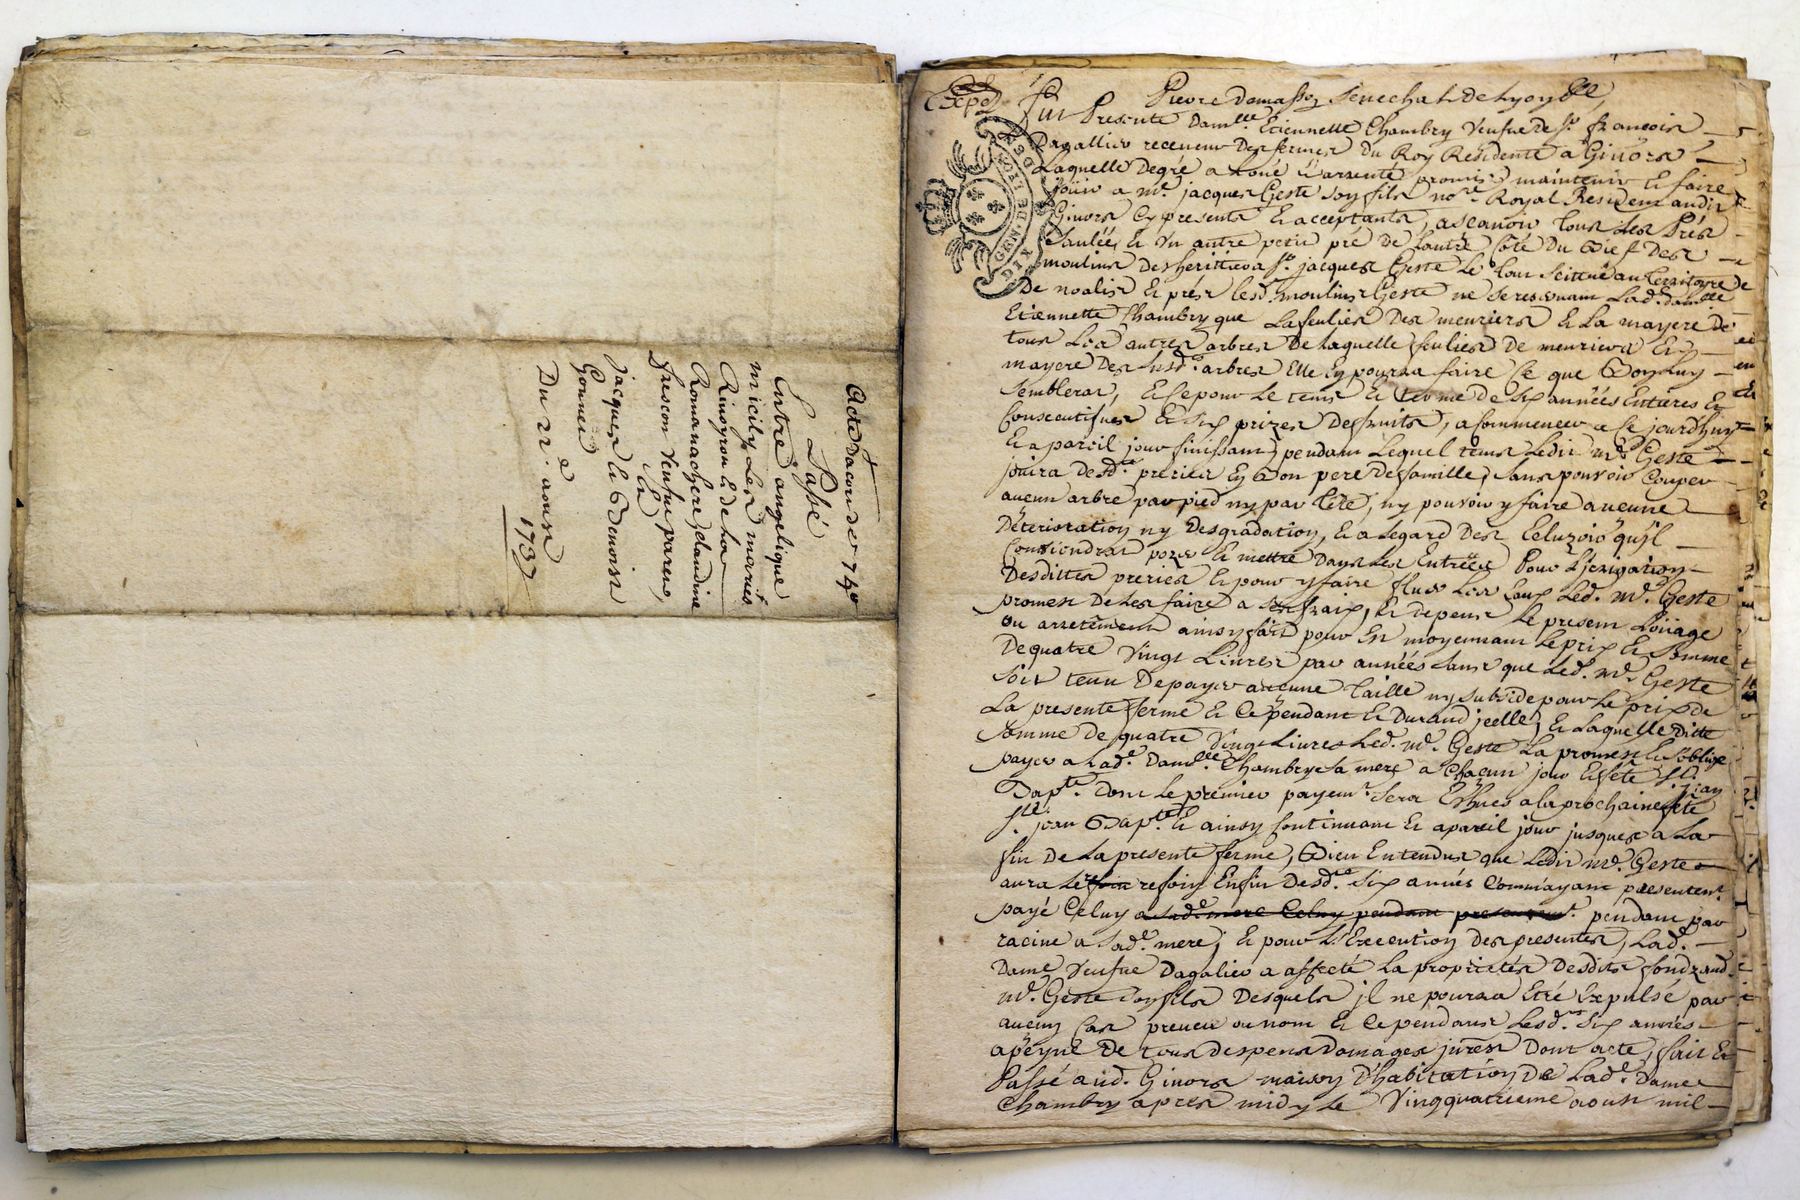 Acte dacord de 74#
Labé
Entre angelique
micily Les mariés
Rinoyron & de La
Romanachere, claudine
frescon veufue parere,
Et
jacques Et Benoist
Gonnet
Du 22e aoust
1737
Expé
Pierre Damasson Senechal de Lyon
fut Presente Damlle. Etiennette Chambry Veufue de Sr. francois
Dagallier receveur des fermes Du Roy Residente a Givors
Laquelle Degré a Loüé & arrenté promis maintenir & faire
jouir a Me. jacques Geste son fils nore. Royal Resident audit
Givors Cy present & acceptant, ascavoir tous Les Prés
Saulées & Un autre petit pré De Lautre Coté Du Bief Des
moulins des heritiers Sr. jacques Geste Le tout Scitué au territoire
De noalis & prés lesd. moulins Geste ne se reservant Lad. damlle
Etiennette Chambry que La feulies Des meuriers & La mayere de
tous Les autres arbres De Laquelle feulies de meuriers Et
mayere Des susd. arbres Elle En pourra faire Ce que Bon Luy
Semblerat, & Ce pour Le tems & terme de Six années Entieres &
Consecutifues & Six prizes Desfruits, a Commencer a Ce jourdhuy
& a pareil jour finissant, pendant Lequel tems Ledit Me Geste
jouira desd. preries En Bon pere defamille, Sans pouvoir Couper
aucun arbre par pied ny par tête, ny pouvoir y faire aucune
Deteriotation ny Desgradation, & a Legard Des Celuzoir qu'jl
Conviendrat pozer & mettre Dans Les Entrées Pour L'jrrigation
Desdittes preries & pour y faire fluer Les Eaux Led. Me. Geste
promest De Les faire a ses fraix, & depens Le present Loüage
ou arretement ainsy fait pour Et moyennant Le prix & Somme
De quatre Vingt Livres par années Sans que Led. Me Geste
Soit tenu De payer aucune taille ny subside pour Le prix de
La presente ferme & Cependant & Durand jcelle, & Laquelle Ditte
Somme de quatre Vingt Livres Led. Me. Geste La promest & S'oblige
payer a Lade. Damlle. Chambry Sa mere a Chacun jour & fete St. jean
Bapte. Dont Le premier payemt. Sera Echues a la prochaine fete
St. jean Bapte. & ainsy Continuant & apareil jour jusques a La
fin De La presente ferme, Bien Entendus que Ledit Me. Geste
aura Le refoin Enfin Desd. Six années Comme ayant presentemt.
payé Celuy a Lade mere Celuy pendant presentemt. pendant par
racine a Lade. mere; & pour L'Execution des presentes, Lad.
Dame Veufue Dagalier a affecté La proprietés Desdits fondz aud.
Me. Geste Son fils Desquels jl ne pourra Etre Expulsé par
aucun Cas preveu ou nom & Cependant Lesd. Six années
apeyne de tous despens Domages jntrests Dont acte, fait &
Passé aud. Givors maison D'habitation De Lade. Dame
Chambry apres midy Le Vingquatrieme aoust mil
GEN. DE LYON
DIX DEN